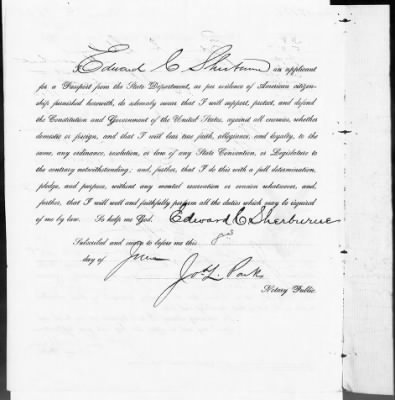 I, Edward C Sherburne an applicant
for a Passport from the State Department, as per evidence of American citizen-
ship furnished herewith, do solemnly swear that I will support, protect, and defend
the Constitution and Government of the United States, against all enemies, whether
domestic or foreign, and that I will bear true faith, allegiance, and loyalty, to the
same, any ordinance, resolution, or law of any State Convention, or Legislature to
the contrary notwithstanding; and, further, that I do this with a full determination,
pledge, and purpose, without any mental reservation or evasion whatsoever, and,
further, that I will well and faithfully perform all the duties which may be required
of me by law. So help me God. Edward C Sherburne
Subscribed and sworn to before me this
day of June
Jos L. Park
Notary Public.